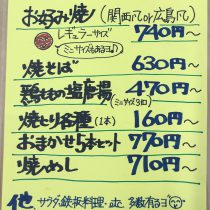 お好み焼 (関西風or広島風)
レギュラーサイズ 740円~
(ミニサイズもあるヨ♪)
焼そば 630円~
鶏ももの塩 470円~
(ミニサイズ3コ)
焼とり各種(1本) 160円~
おまかせ5本セット 770円~
焼めし 710円~
他 サラダ・鉄板料理・etc 多数有るヨ